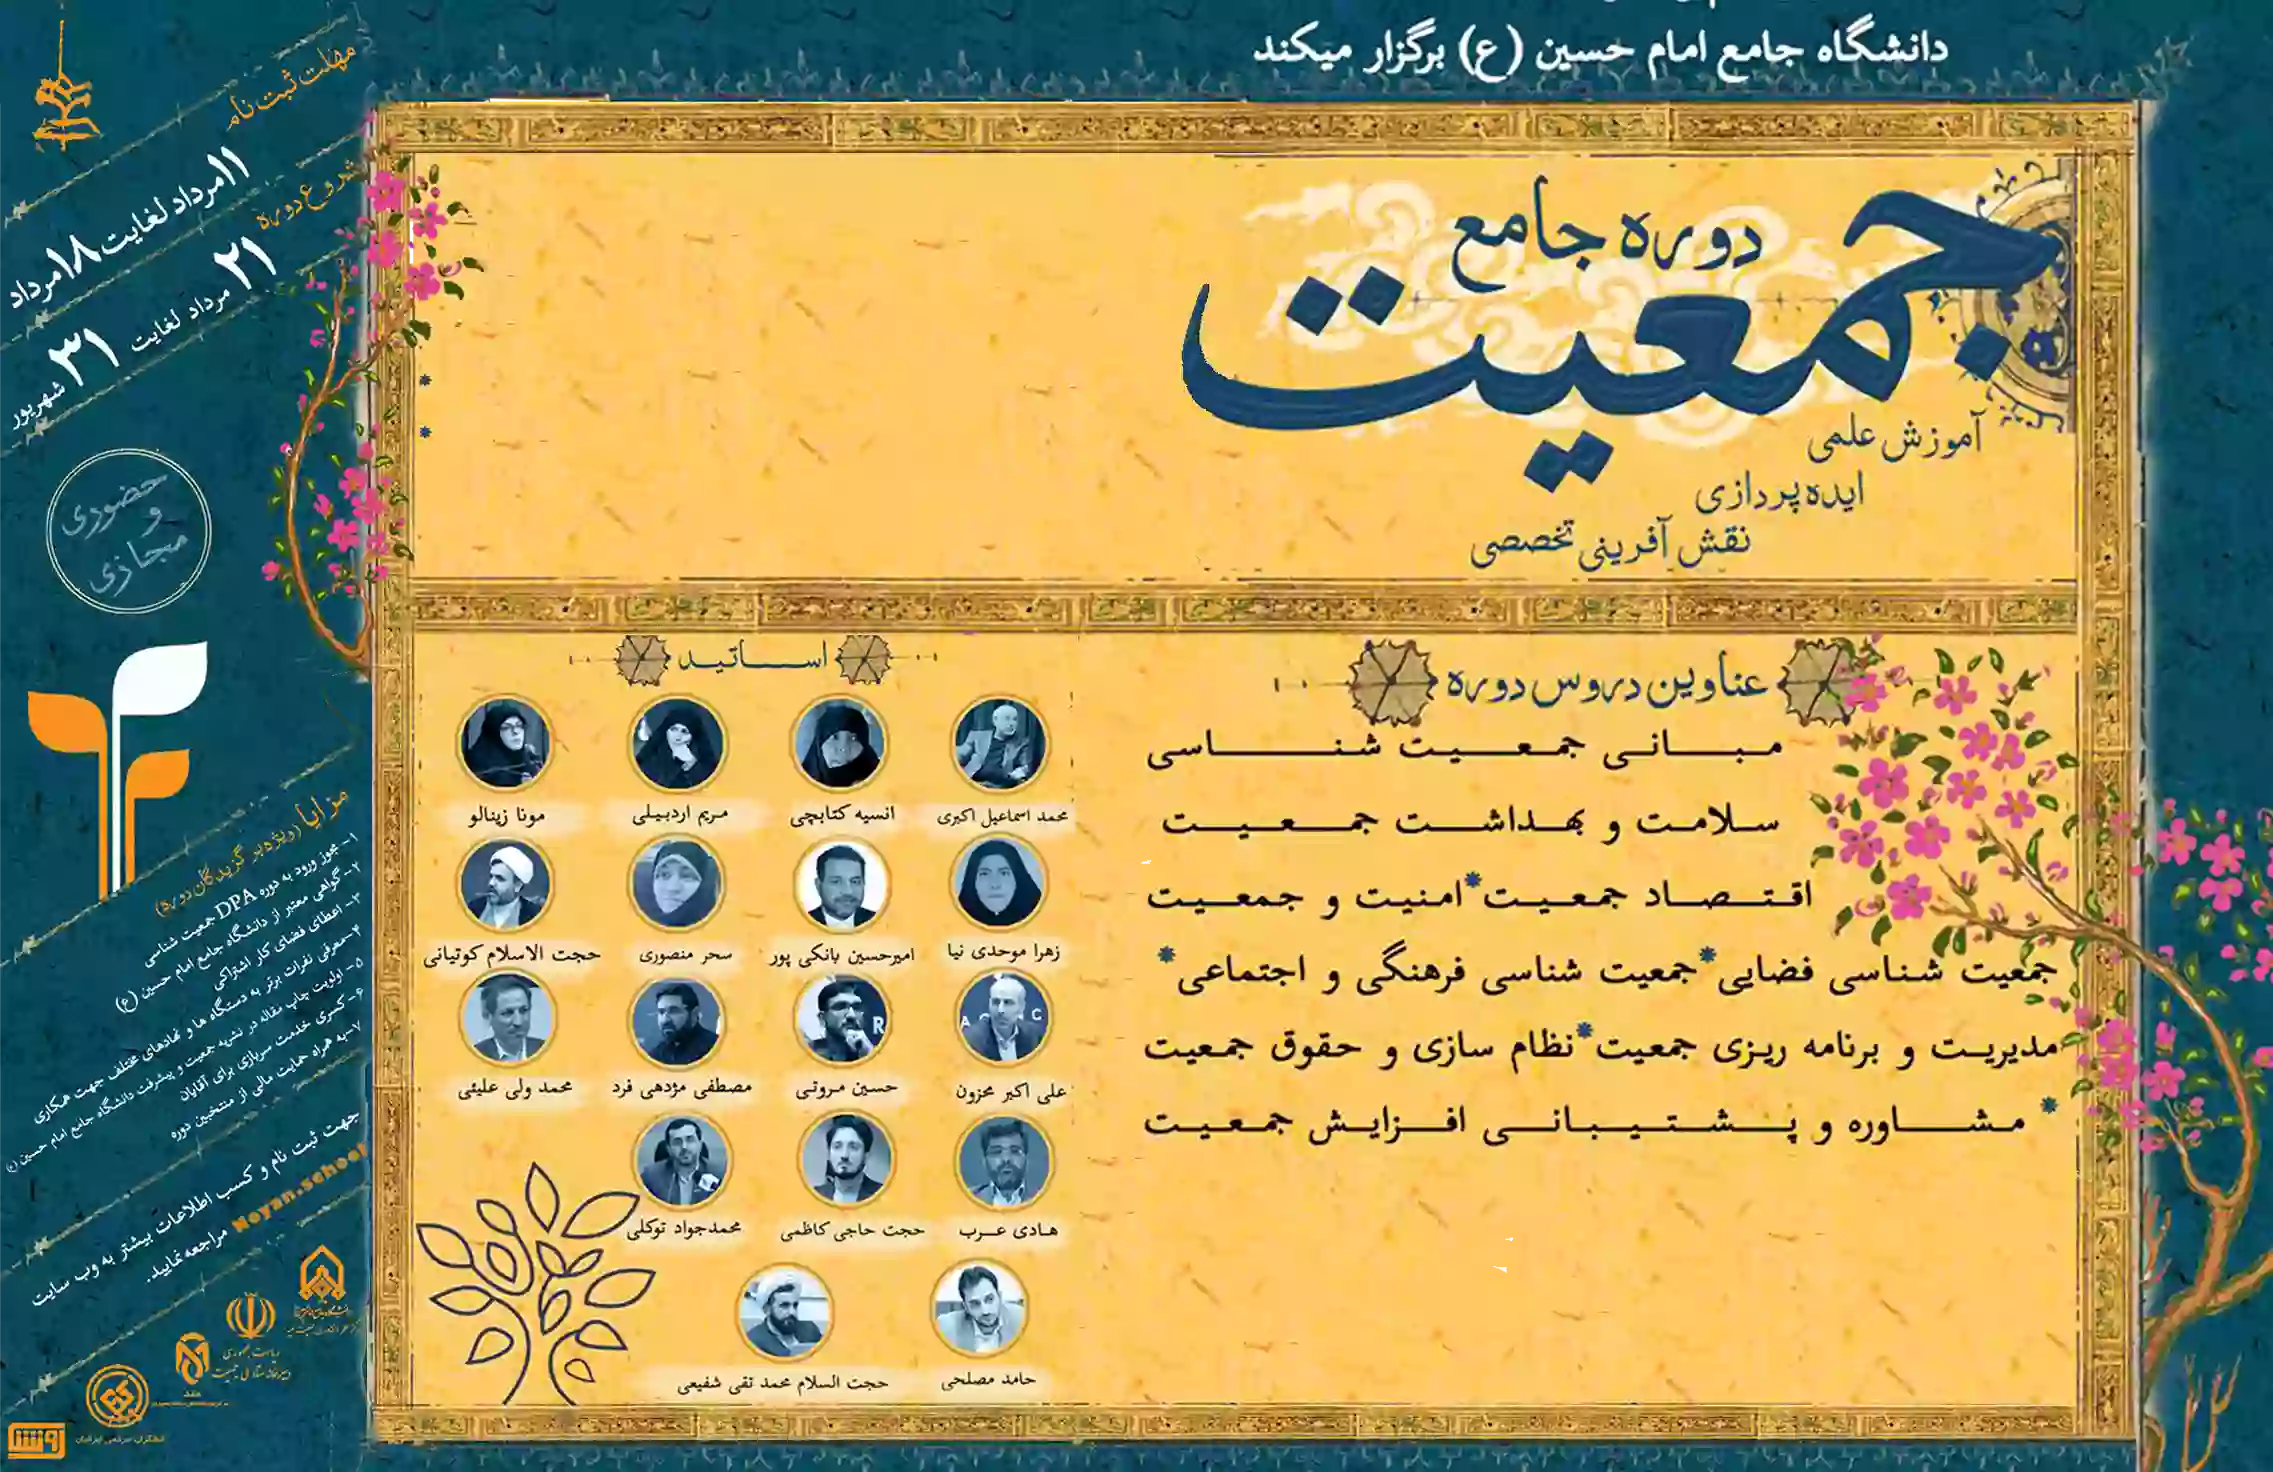 دانشگاه جامع امام حسین (ع) برگزار میکند
دوره جامع
جمعیت
آموزش علمی
ایده پردازی
نقش آفرینی تخصصی
عناوین دروس دوره
مبانی جمعیت شناسی
سلامت و بهداشت جمعیت
اقتصاد جمعیت * امنیت و جمعیت
جمعیت شناسی فضایی * جمعیت شناسی فرهنگی و اجتماعی *
مدیریت و برنامه ریزی جمعیت * نظام سازی و حقوق جمعیت
* مشاوره و پشتیبانی افزایش جمعیت
اساتید
محمد اسماعیل اکبری
انسیه کتابچی
مریم اردبیلی
مونا زینالو
زهرا موحدی نیا
امیرحسین بانکی پور
سحر منصوری
حجت الاسلام کوتیانی
علی اکبر محزون
حسین مروتی
مصطفی مژدهی فرد
محمد ولی علیئی
هادی عرب
حجت حاجی کاظمی
محمدجواد توکلی
حامد مصلحی
حجت السلام محمد تقی شفیعی
مهلت ثبت نام
۱۱ مرداد لغایت ۱۸ مرداد
شروع دوره
۲۱ مرداد لغایت ۳۱ شهریور
حضوری
و
مجازی
مزایا (ویژه برگزیدگان دوره)
۱- مجوز ورود به دوره DPA جمعیت شناسی
۲- گواهی معتبر از دانشگاه جامع امام حسین (ع)
۳- اعطای فضای کار اشتراکی
۴- معرفی نفرات برتر به دستگاه ها و نهادهای مختلف جهت همکاری
۵- اولویت چاپ مقاله در نشریه جمعیت و پیشرفت دانشگاه جامع امام حسین (ع)
۶- کسری خدمت سربازی برای آقایان
۷- به همراه حمایت مالی از منتخبین دوره
جهت ثبت نام و کسب اطلاعات بیشتر به وب سایت
Noyan.school مراجعه نمایید.
ریاست جمهوری